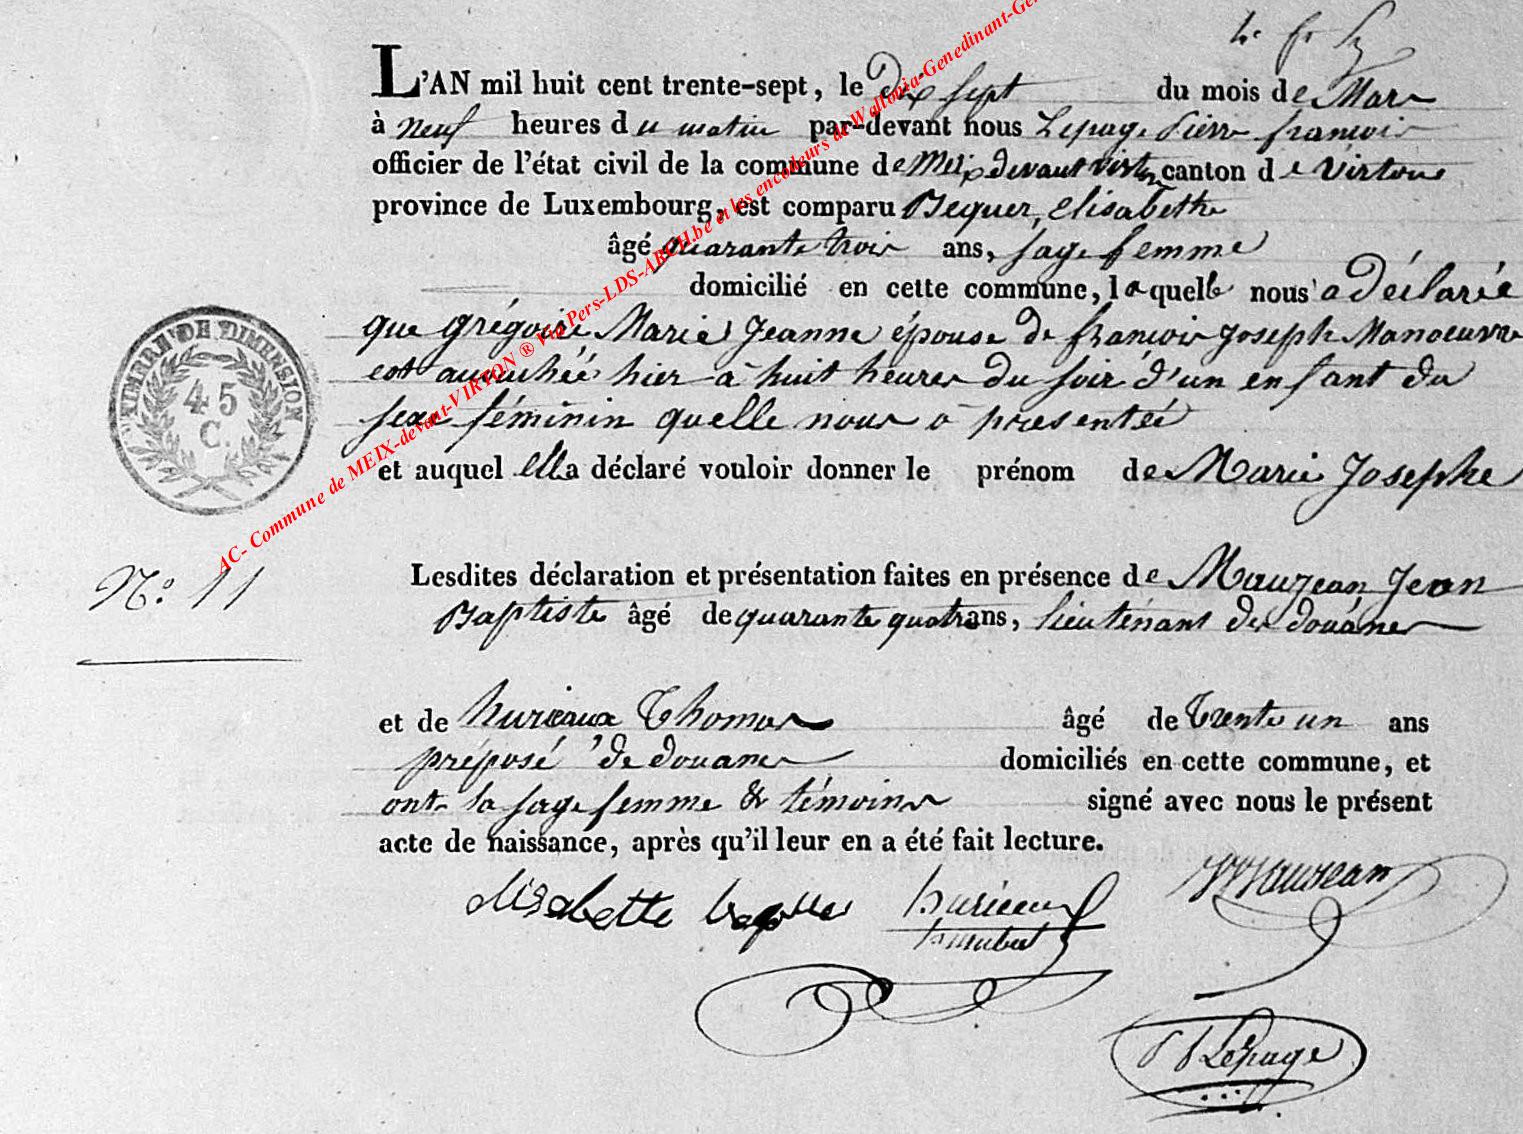 L'AN mil huit cent trente-sept, le dix sept du mois de Mars
à neuf heures du matin par-devant nous Lepage Pierre françois
officier de l'état civil de la commune de Meix devant virton canton de virton
province de Luxembourg, est comparu Bequer, elisabethe
âgé quarante trois ans, sage femme
domicilié en cette commune, laquelle nous a déclaré
que grégoire Marie Jeanne épouse de françois Joseph Manoeuvre
est accouchée hier à huit heures du soir d'un enfant du
sexe féminin quelle nous a presentée
et auquel ella déclaré vouloir donner le prénom de Marie Josephe
TIMBRE DE DIMENSION
45
C.
AC- Commune de MEIX-devant-VIRTON ® Via Pers-LDS-ARCH.be et les encodeurs de Wallonia-Genedinant-Gen
N.o 11
Lesdites déclaration et présentation faites en présence de Mauzean Jean
Baptiste âgé de quarante quatre ans, lieutenant des douanes
et de huricaux Thomas âgé de trente un ans
préposé de douanes domiciliés en cette commune, et
ont la sage femme & témoins signé avec nous le présent
acte de naissance, après qu'il leur en a été fait lecture.
elisabette Mauzean
huricau
P f Lepage